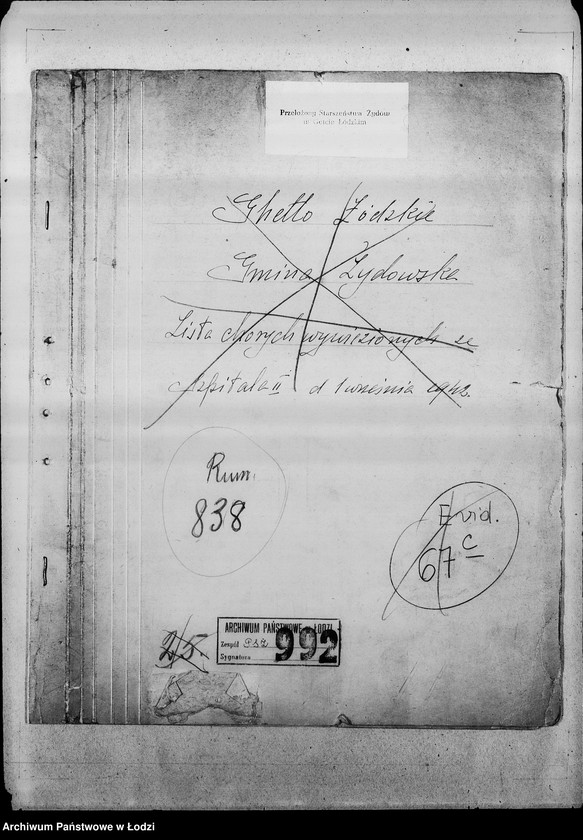 Przełożony Starszeństwa Żydów
w Getcie Łódzkim
Ghetto Łódzkie
Gmina Żydowska
Lista chorych wywiezionych ze
szpitala II d 1 września
Rum.
838
Ewid.
67 c
25
ARCHIWUM PAŃSTWOWE w ŁODZI
Zespół PSŻ
Sygnatura 992
Archiwum Państwowe w Łodzi